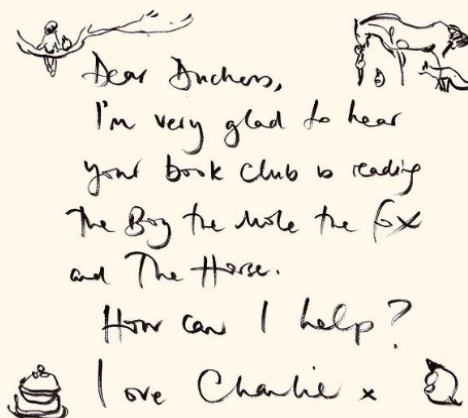 Dear Duchess,
I'm very glad to hear
your book club is reading
The Boy the Mole the Fox
and The Horse.
How can I help?
Love Charlie x